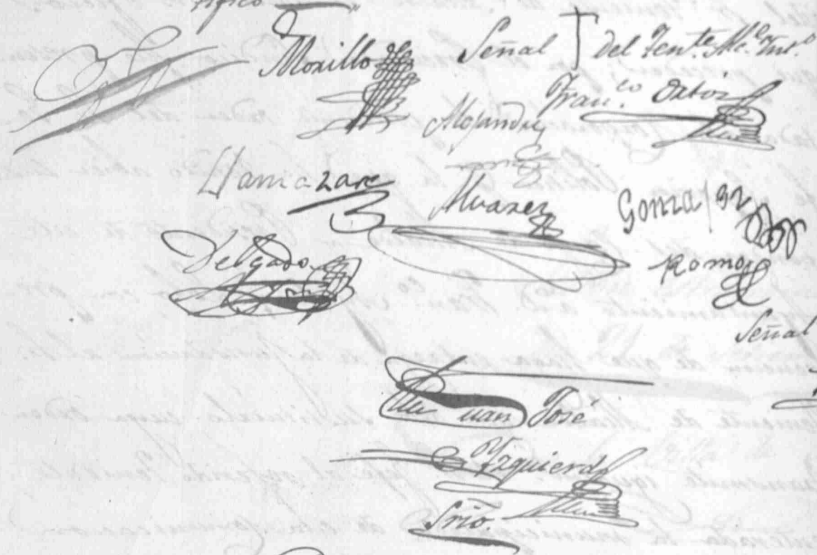 tífico
Morillo Señal † del Tente. Al. Int.º
Franco. Ortiz
Alejandre
Llamazare
Alvarez
Gonzalez
Delgado
Romo
Señal
Juan José
Yzquierdo
Srio.